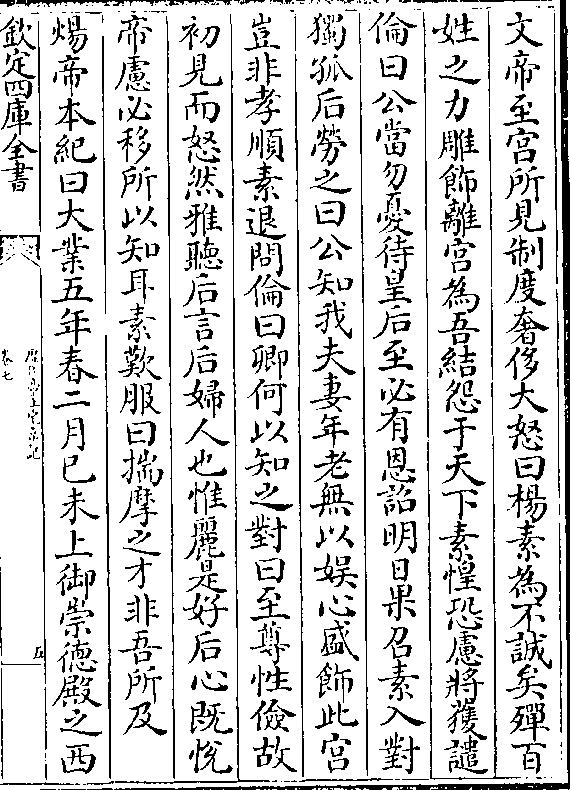 文帝至宫所見制度奢侈大怒曰楊素為不誠矣殫百
姓之力雕飾離宫為吾結怨于天下素惶恐慮將獲譴
倫曰公當勿憂待皇后至必有恩詔明日果召素入對
獨孤后勞之曰公知我夫妻年老無以娱心盛飾此宫
豈非孝順素退問倫曰卿何以知之對曰至尊性儉故
初見而怒然雅聽后言后婦人也惟麗是好后心既悦
帝慮必移所以知耳素歎服曰揣摩之才非吾所及
煬帝本紀曰大業五年春二月已未上御崇德殿之西
欽定四庫全書
卷七
五